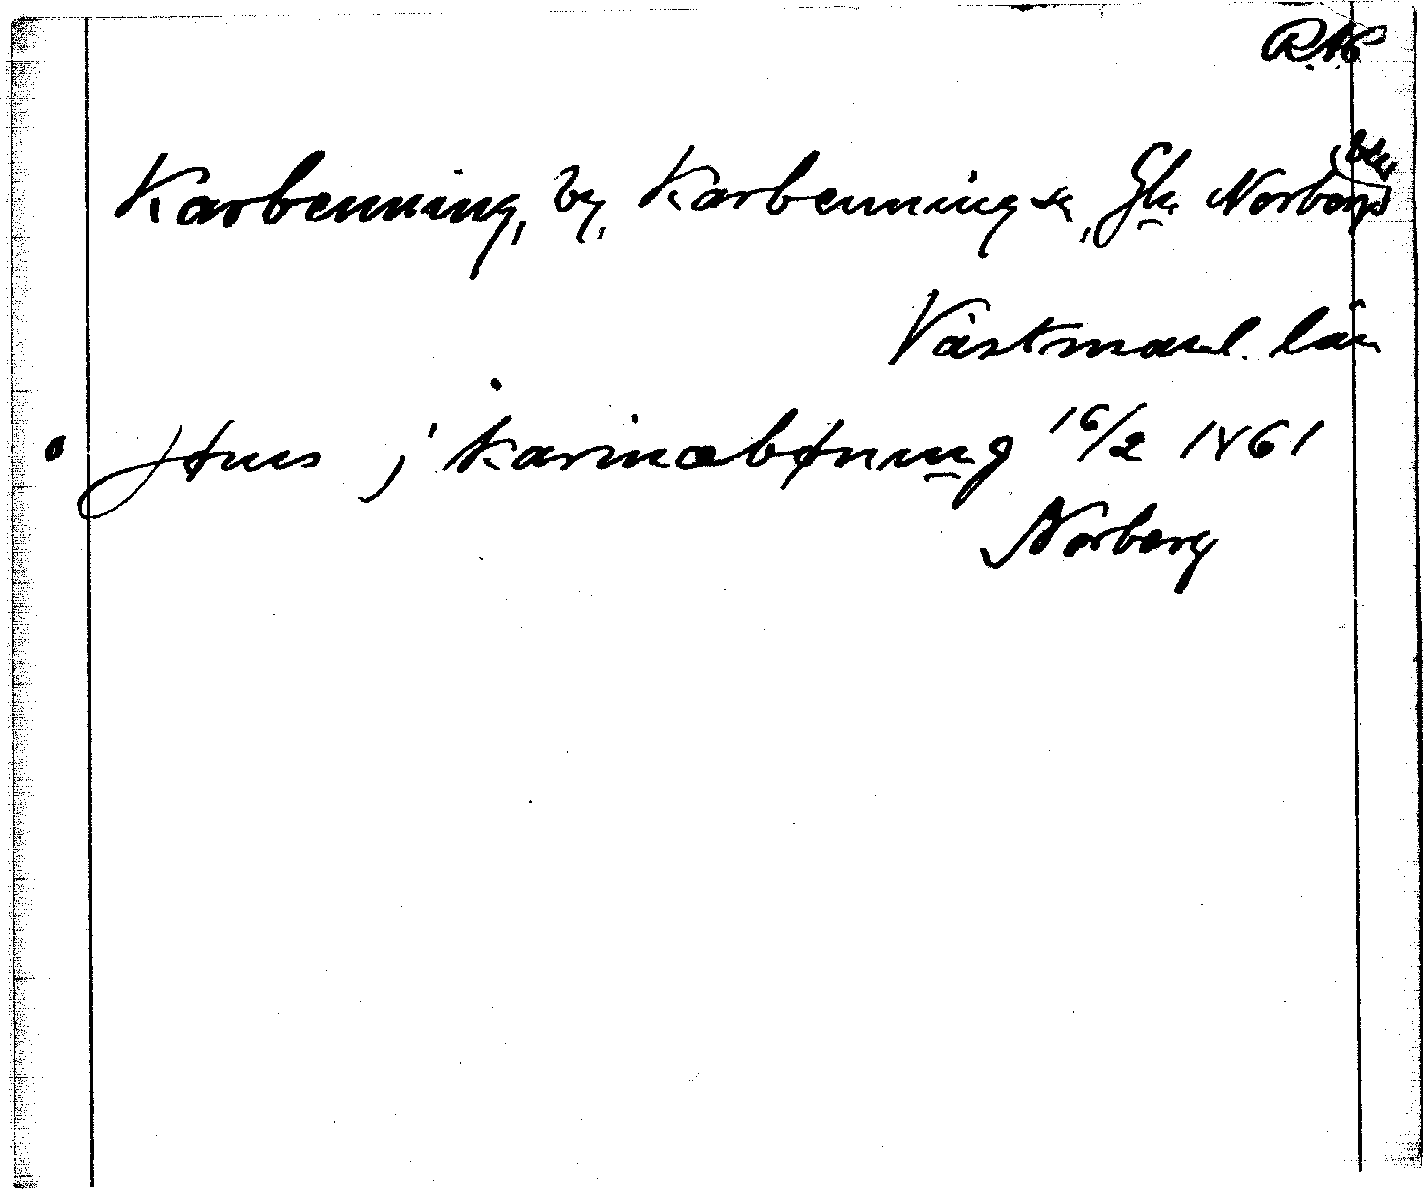 RAP
Karbenning, by, Karbennings sn, Gla Norbergs
bslag
Västmanl. län
Jøns j karinæbøning 16/2 1461
Norberg